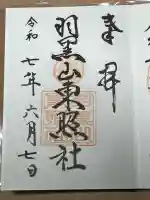 奉拝
羽黒山東照社
令和七年六月七日